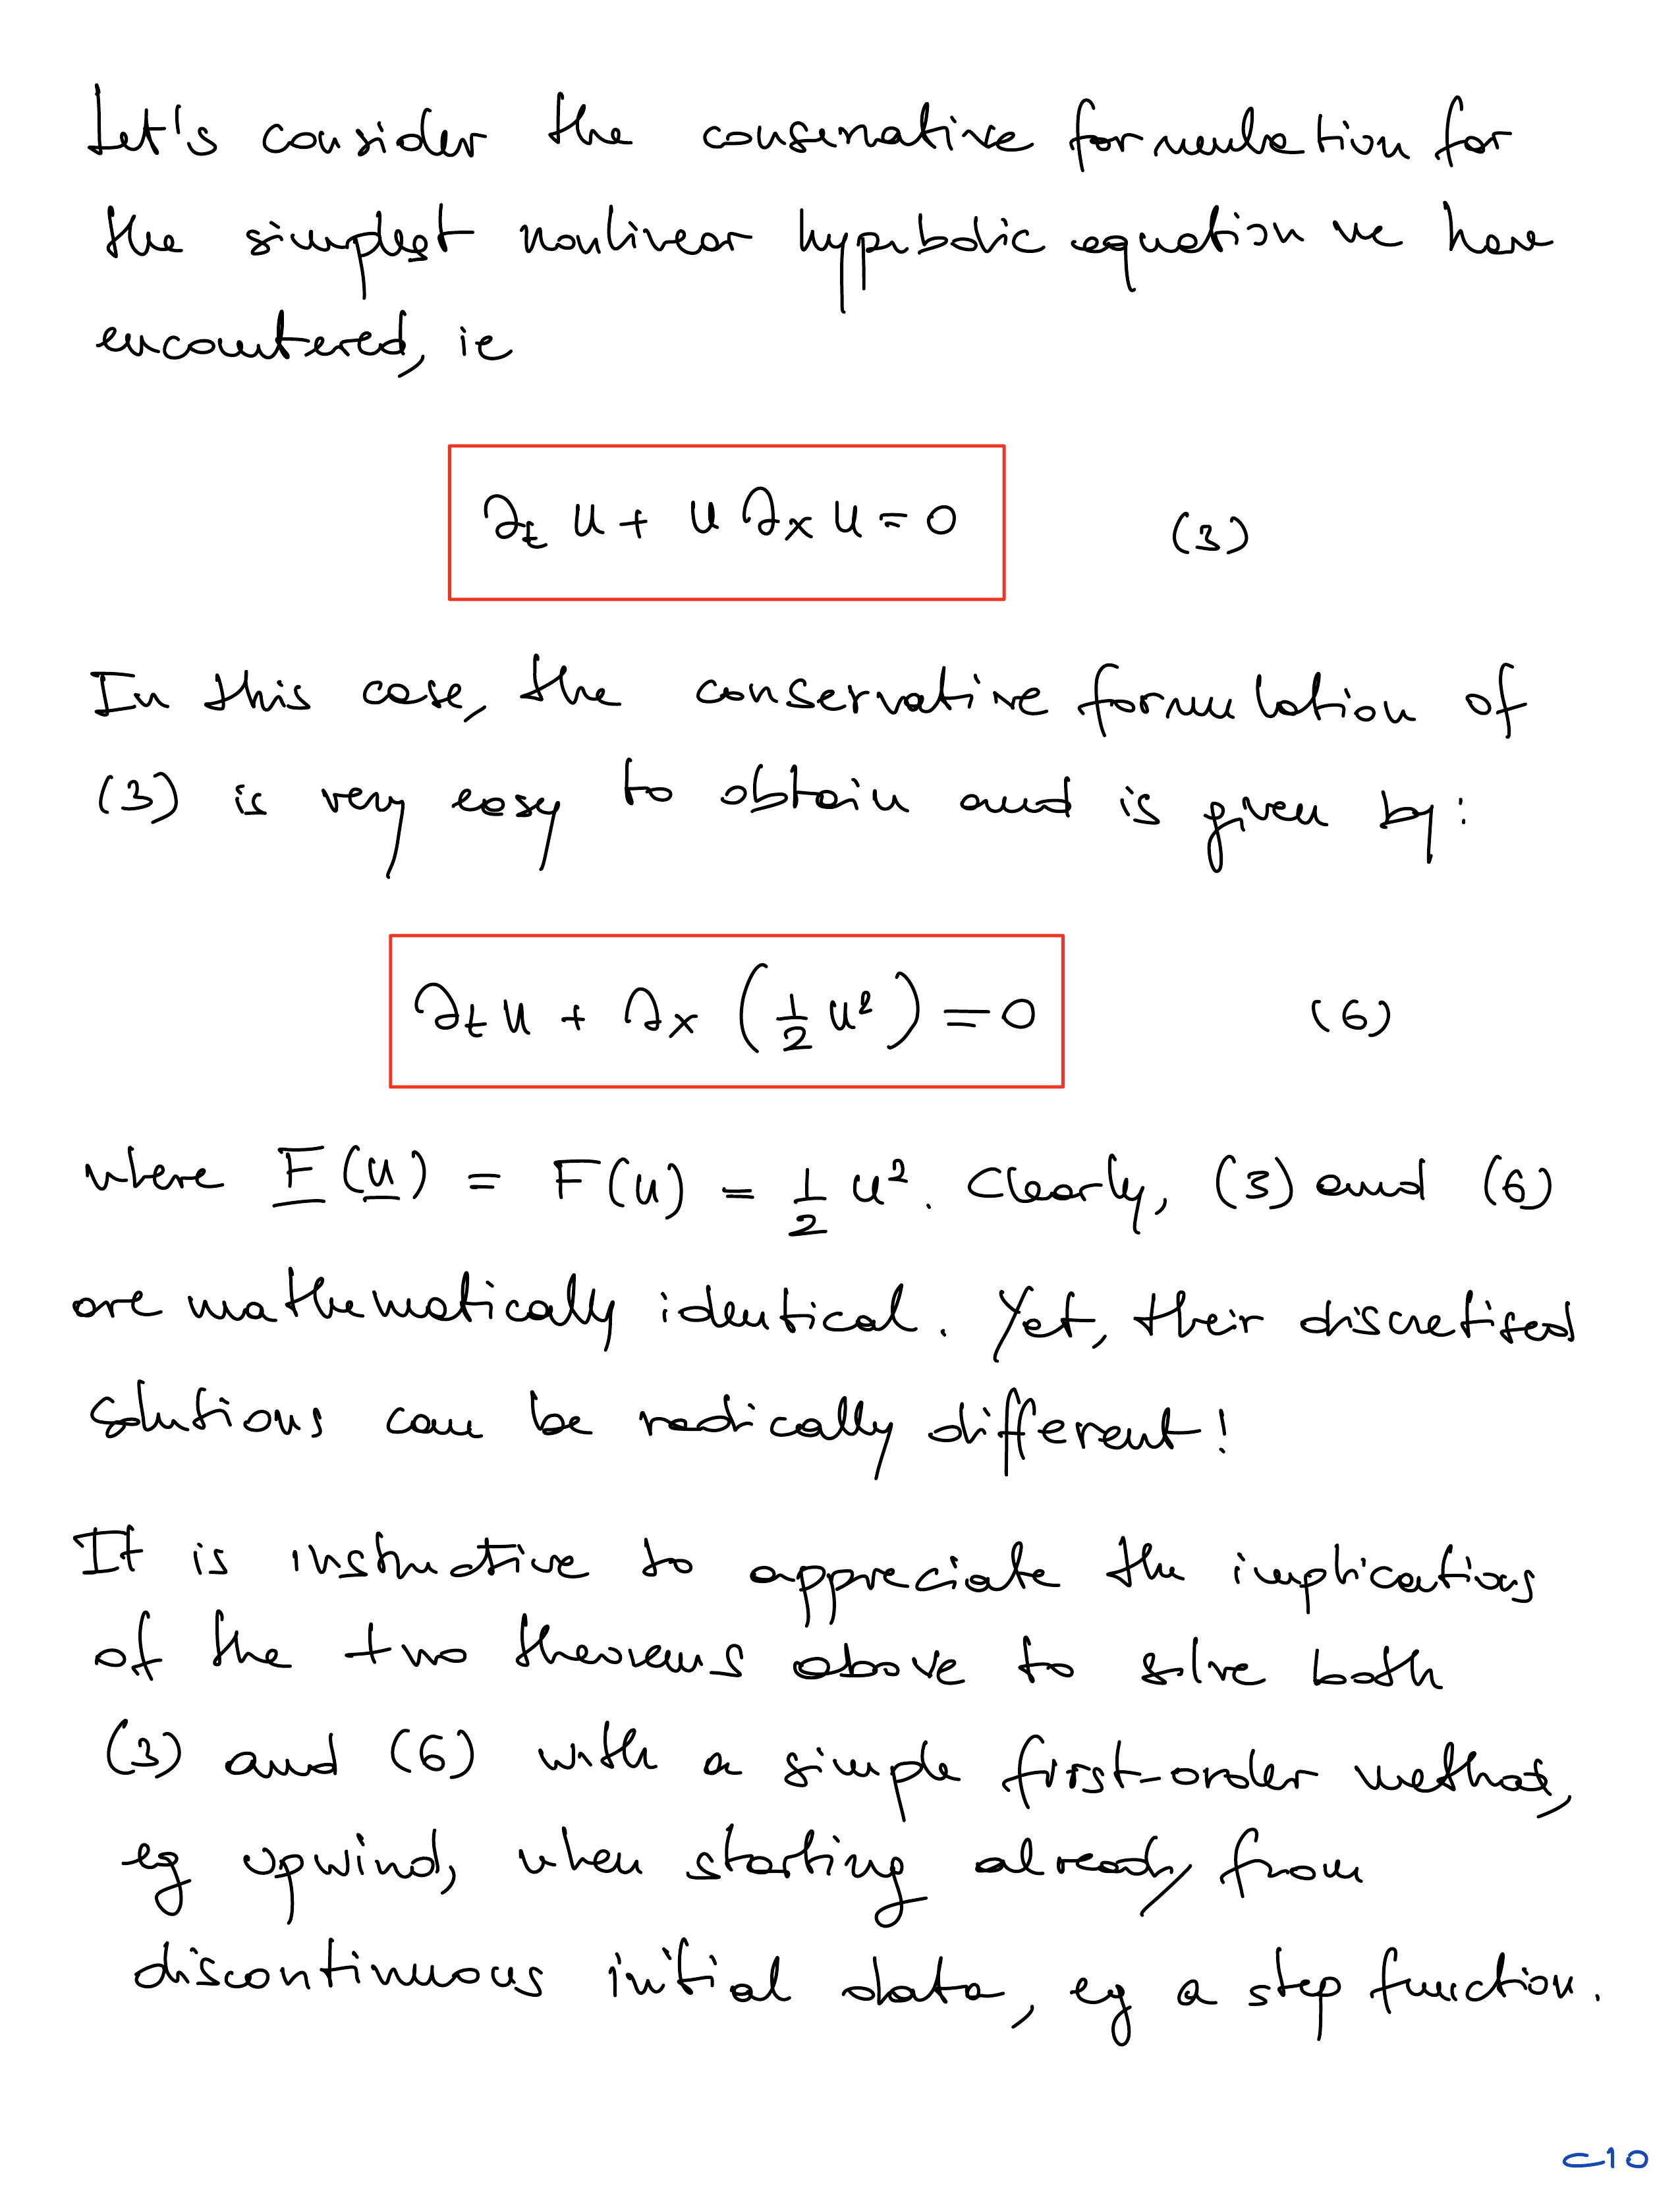 Let's consider the conservative formulation for
the simplest nonlinear hyperbolic equation we have
encountered, ie
∂ₜ u + u ∂ₓ u = 0 (3)
In this case, the conservative formulation of
(3) is very easy to obtain and is given by:
∂ₜ u + ∂ₓ (½ u²) = 0 (6)
where F(u) = F(u) = ½ u². Clearly, (3) and (6)
are mathematically identical. Yet, their discretised
solutions can be radically different!
It is instructive to appreciate the implications
of the two theorems above to solve both
(3) and (6) with a simple first-order method,
eg upwind, when starting already from
discontinuous initial data, eg a step function.
C10